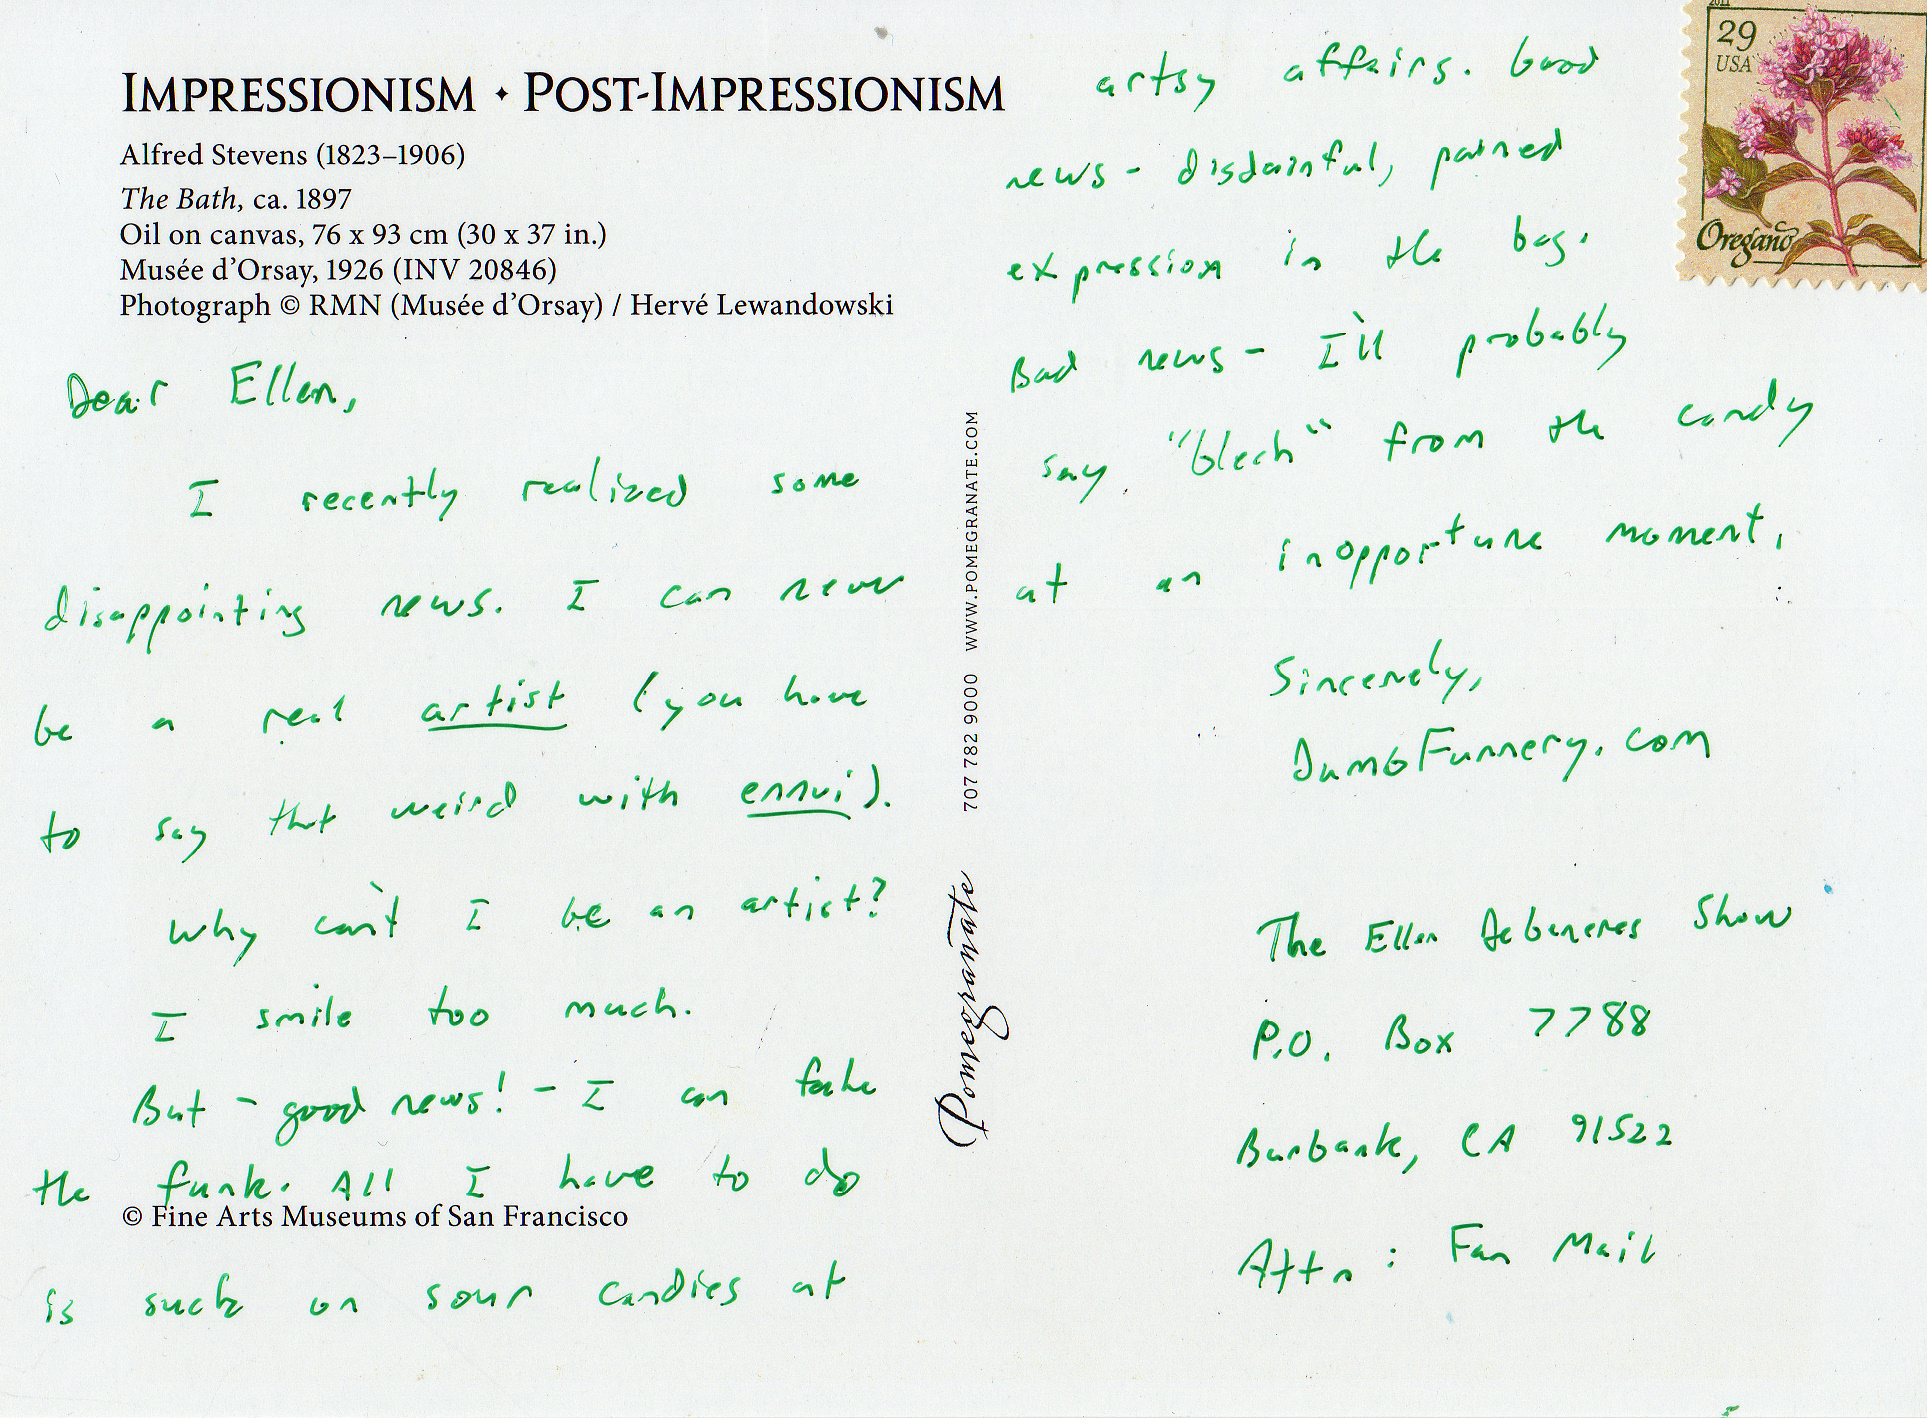 IMPRESSIONISM • POST-IMPRESSIONISM
Alfred Stevens (1823–1906)
The Bath, ca. 1897
Oil on canvas, 76 x 93 cm (30 x 37 in.)
Musée d'Orsay, 1926 (INV 20846)
Photograph © RMN (Musée d'Orsay) / Hervé Lewandowski
Dear Ellen,
I recently realized some
disappointing news. I can never
be a real artist (you have
to say that weird with ennui).
Why can't I be an artist?
I smile too much.
But - good news! - I can fake
the funk. All I have to do
© Fine Arts Museums of San Francisco
is suck on sour candies at
707 782 9000 WWW.POMEGRANATE.COM
Pomegranate
artsy affairs. Good
news - disdainful, pained
expression in the bag.
Bad news - I'll probably
say "blech" from the candy
at an inopportune moment.
Sincerely,
DumbFunnery.com
2011
29
USA
Oregano
The Ellen Degeneres Show
P.O. Box 7788
Burbank, CA 91522
Attn: Fan Mail